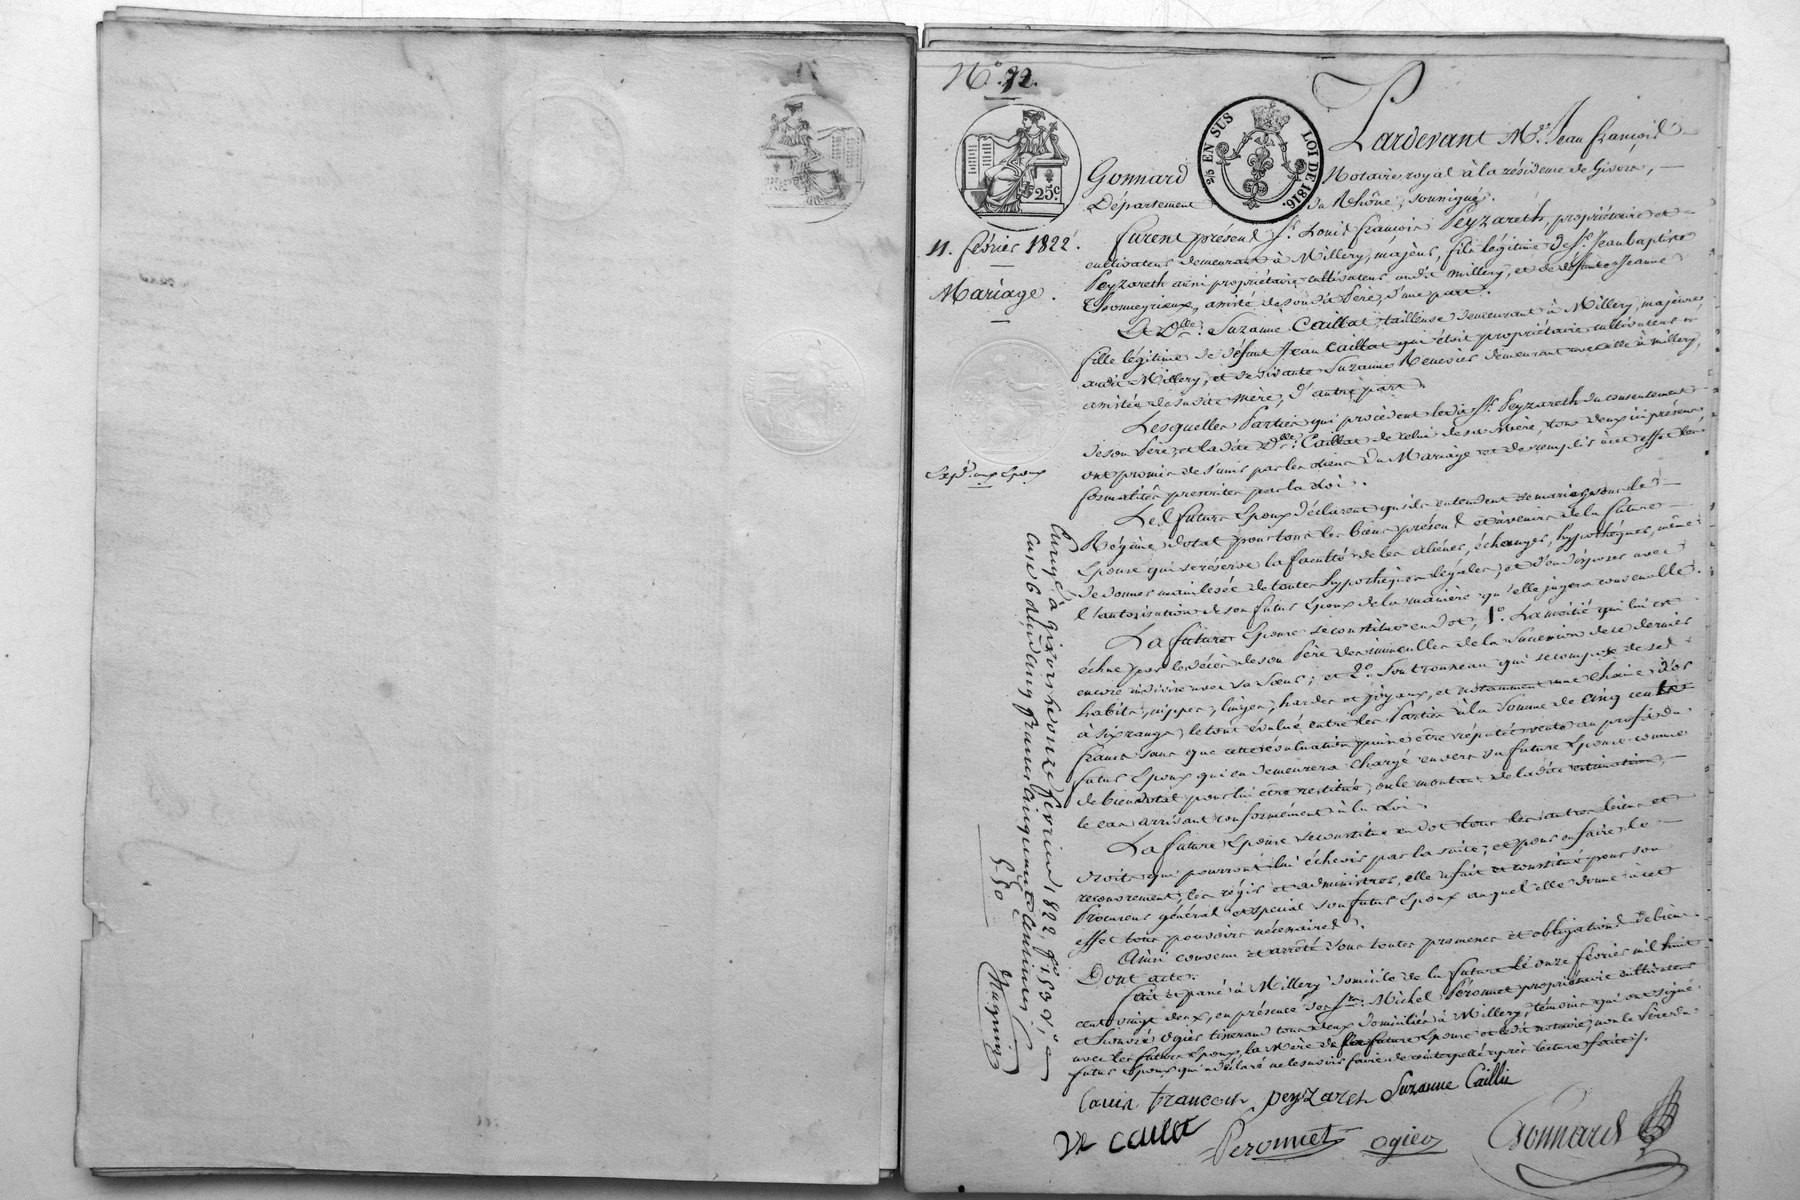 N.º 72.
Pardevant M.e Jean François
Gonnard Notaire royal à la résidence de Givors,
Département du Rhône, soussigné.
25.c
2/5 EN SUS LOI DE 1816.
11. février 1822.
Mariage.
Furent présens S.r Louis François Peyzareth, propriétaire et
cultivateur demeurant à Millery, majeur, fils légitime de S.r Jean baptiste
Peyzareth aussi propriétaire cultivateur audit Millery, et de défunte Jeanne
assisté de son dit Père, d'une part.
Et D.lle Suzanne Caillat, tailleuse demeurant à Millery, majeure,
fille légitime de défunt Jean Caillat qui étoit propriétaire cultivateur
audit Millery, et de vivante Suzanne Renevier demeurant avec elle à Millery,
assistée de sa dite Mère, d'autre part.
Lesquelles Parties qui procèdent ledit S.r Peyzareth du consentement
de son Père, et la dite D.lle Caillat de celui de sa Mère, tous deux ici présens
ont promis de s'unir par les liens du Mariage et de remplir à cet effet les
formalités prescrites par la Loi.
Expé.d aux Epoux
Les futurs Epoux déclarent qu'ils entendent se marier sous le
Régime dotal pour tous les biens présens et à venir de la future
Epouse qui se réserve la faculté de les aliéner, échanger, hypothéquer, même
de donner mainlevée de toutes hypothèques légales, et d'en disposer avec
l'autorisation de son futur Epoux de la manière qu'elle jugera convenable.
La future Epouse se constitue en dot, 1.º La moitié qui lui est
échue par le décès de son Père des immeubles de la Succession de ce dernier
encore indivise avec sa Sœur; et 2.º Son trousseau qui se compose de ses
habits, nippes, linges, hardes et joyaux, et notamment une chaine d'or
à six rangs, le tout évalué entre les Parties à la Somme de cinq cents
francs sans que cette évaluation puisse être réputée vente au profit du
futur Epoux qui en demeurera chargé envers sa future Epouse comme
de bien dotal pour lui être restitué, ou le montant de ladite estimation,
le cas arrivant conformément à la Loi.
La future Epouse se constitue en dot tous les autres biens et
droits qui pourront lui échoir par la suite; et pour en faire le
recouvrement, les régir et administrer, elle a fait et constitué pour son
Procureur général et spécial son futur Epoux auquel elle donne à cet
effet tous pouvoirs nécessaires.
Ainsi convenu et arrêté sous toutes promesses et obligations de biens.
Dont acte.
Fait et passé à Millery domicile de la future le onze février mil huit
cent vingt deux, en présence des S.rs Michel Péronnet propriétaire cultivateur
et Ogier tisserand tous deux domiciliés à Millery, témoins qui ont signé
avec les futurs Epoux, la Mère de la future Epouse et ledit notaire, non le Père du
futur Epoux qui a déclaré ne le savoir faire de ce interpellé après lecture faite.
Louis françois peyzaret Suzanne Caillit
Ve caillat Peronnet ogier Gonnard
Enregé à Givors le onze février 1822, f.º 153 v.º,
case 6 reçu cinq francs cinquante centimes
5.50